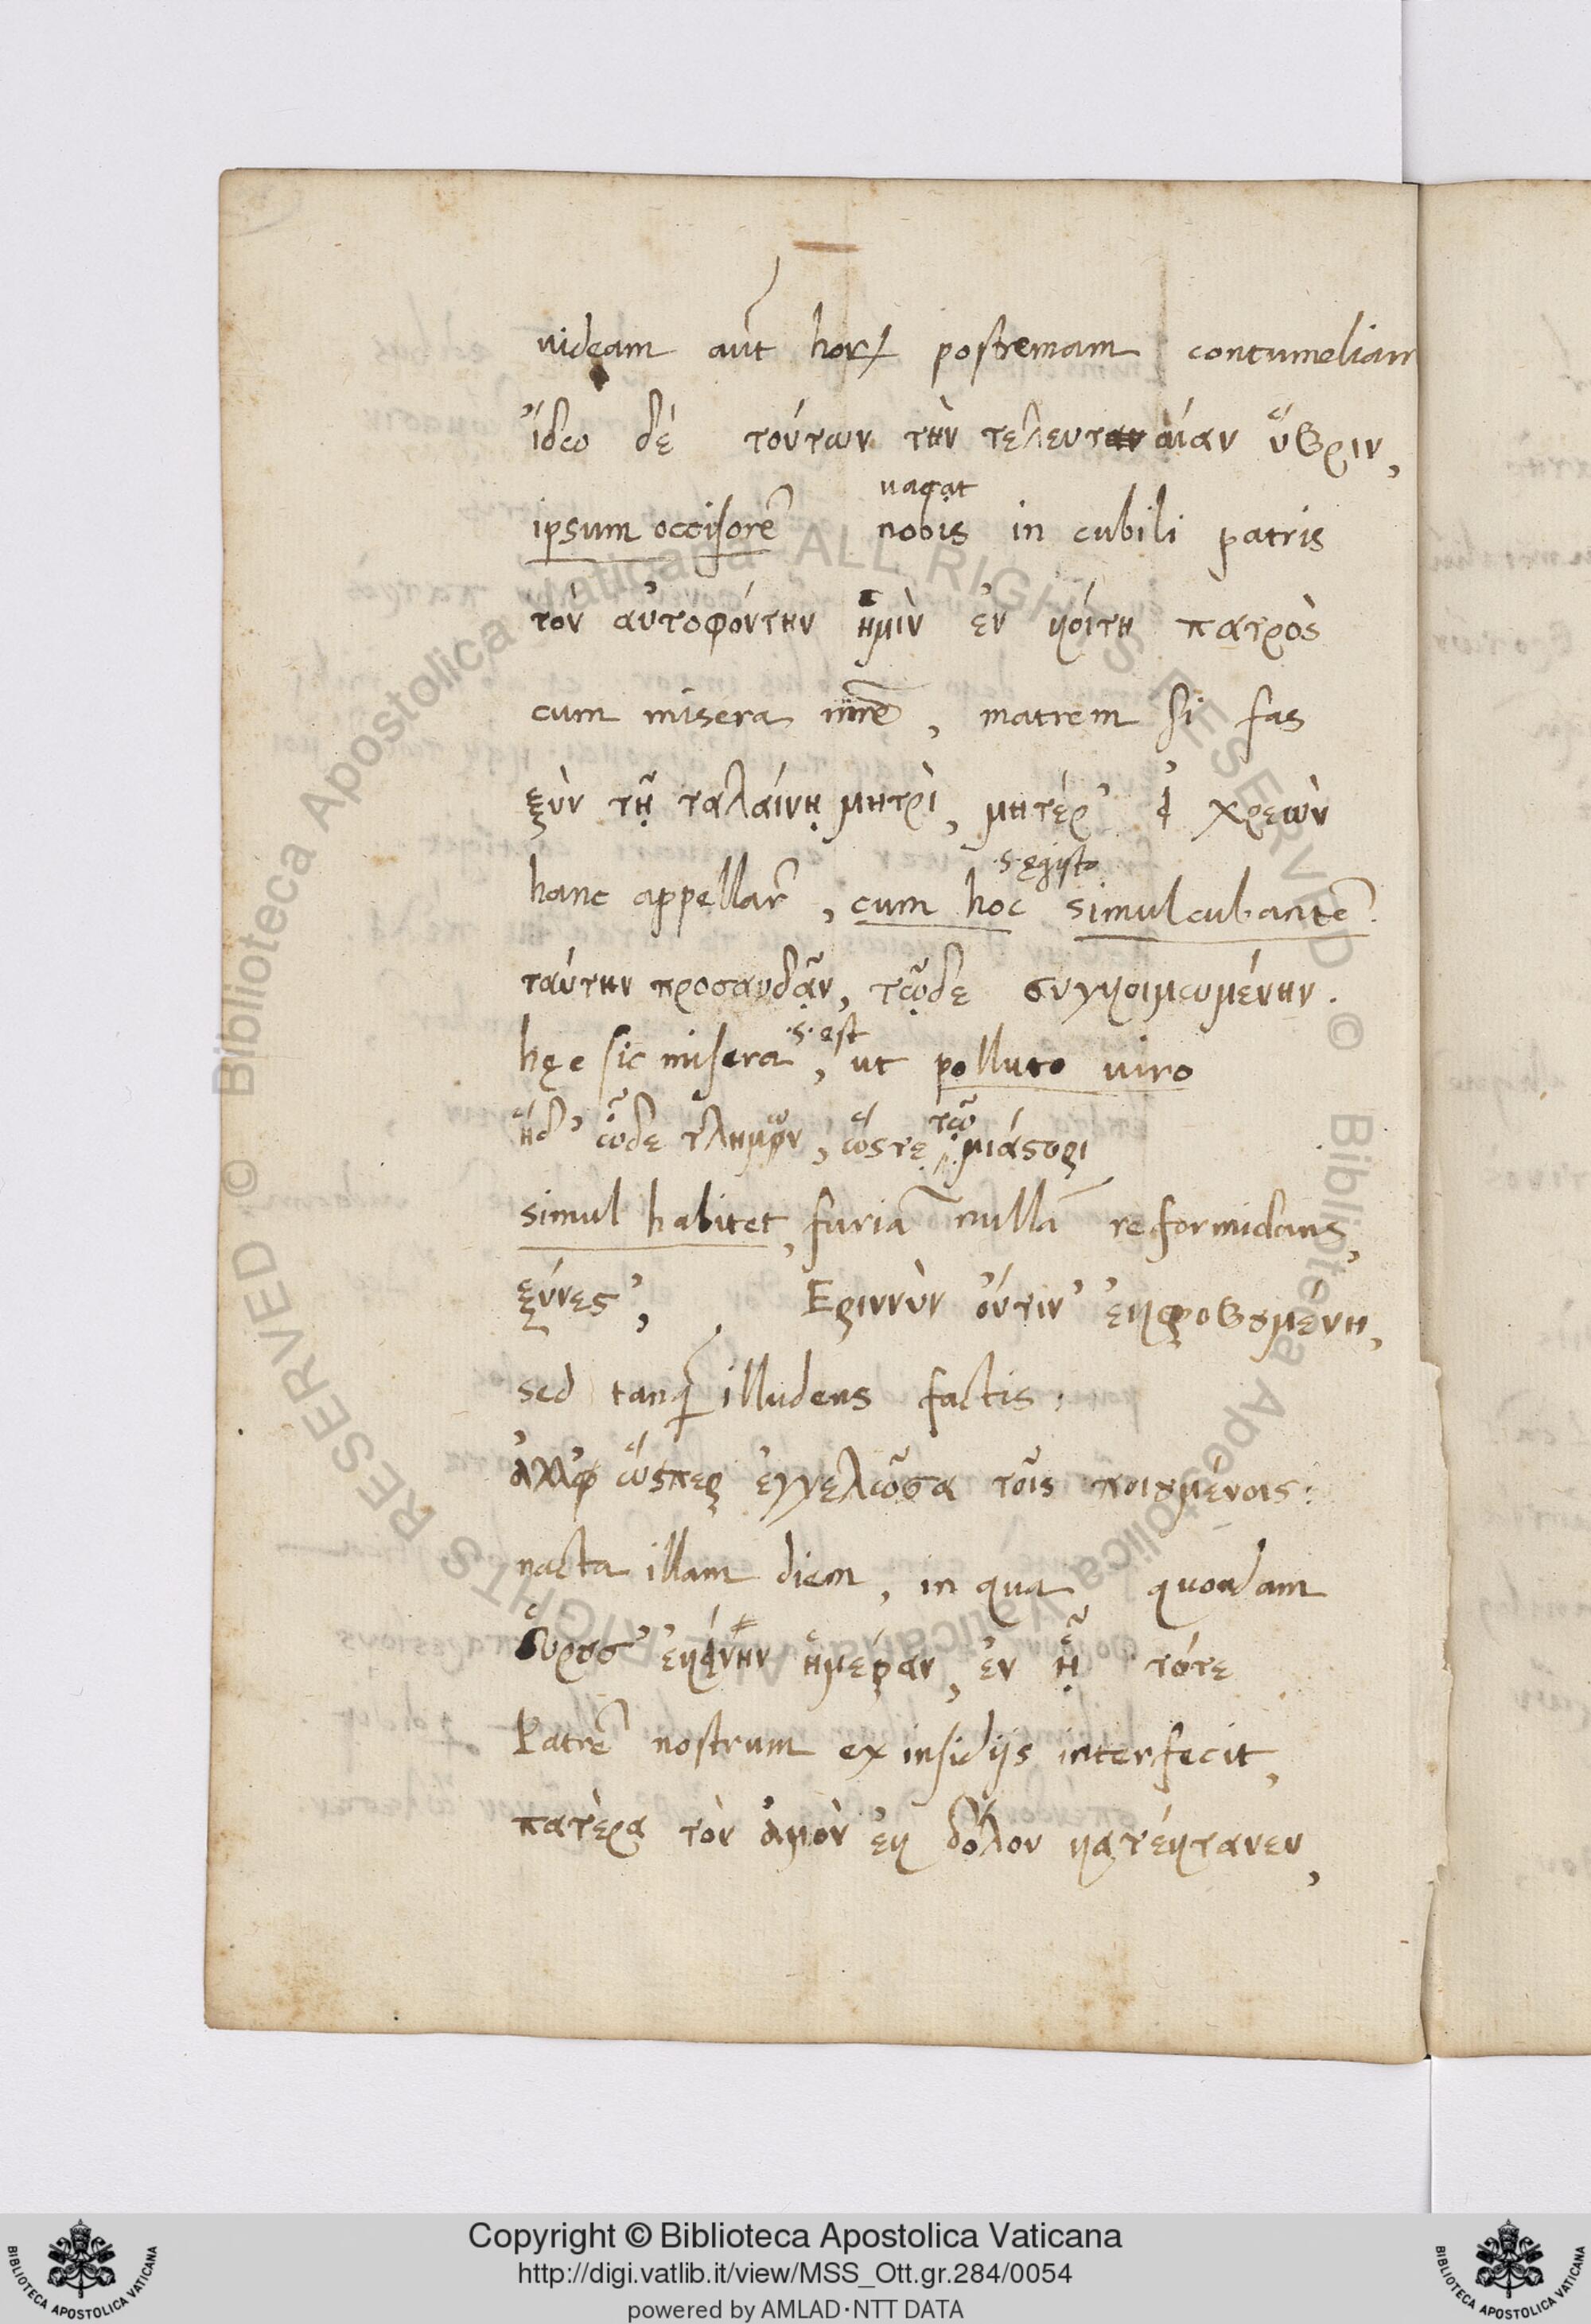 uideam aūt horꝝ postremam contumeliam
ἴδω δέ τούτων τὴν τελευταίαν ὕβριν,
uacat
ipsum occisorē nobis in cubili patris
τόν αὐτοφόντην ἥμιν ἐν κοίτη πατρὸς
cum misera mr̄e, matrem si fas
ξὺν τῇ ταλαίνῃ μητρὶ, μητέρ' εἰ χρεὼν
.s. egisto
hanc appellar̄, cum hoc simul cubantē.
ταύτην προσαυδᾷν, τῷδε συγκοιμωμένην.
.s. est
hęc sic misera, ut polluto uiro
τῷ
ἥδ' ὧδε τλήμων, ὥστε μιάστορι
simul habitet, furiā nullā reformidans,
ξύνεσ', Ερινννὺν οὔτιν' ἐκφοβουμένη,
sed tanꝗ illudens factis:
ἀλλ' ὥσπερ ἐγγελῶσα τοῖς ποιουμένοις:
nacta illam diem, in qua quondam
εὑροῦσ' ἐκείνην ἡμέραν, ἐν ᾗ τότε
Patrē nostrum ex insidijs interfecit,
πατέρα τὸν ἀμὸν ἐκ δόλου κατέκτανεν,
Copyright © Biblioteca Apostolica Vaticana
http://digi.vatlib.it/view/MSS_Ott.gr.284/0054
powered by AMLAD·NTT DATA